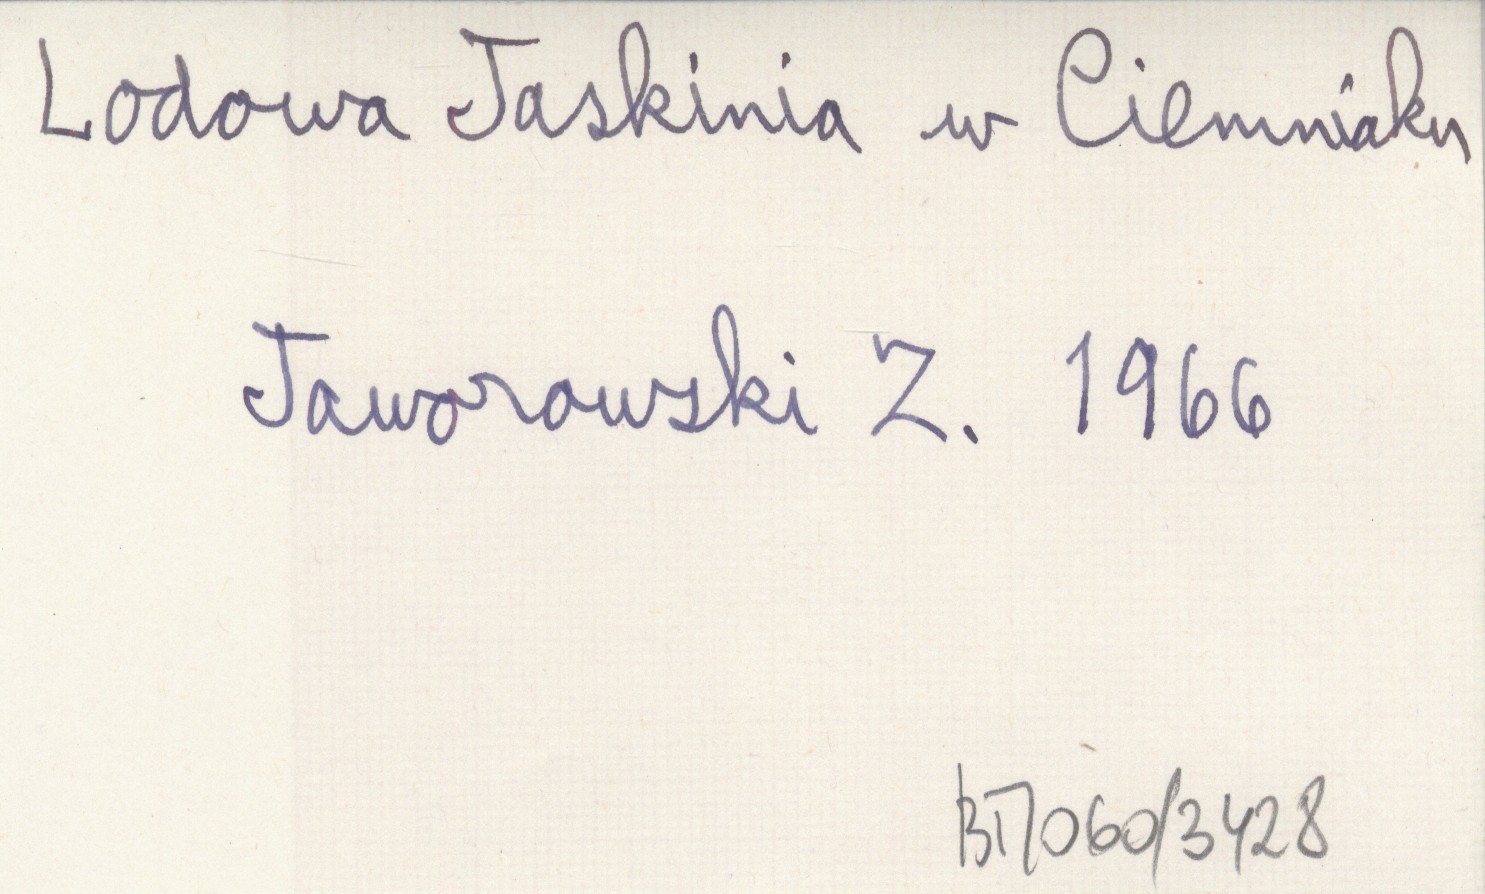 Lodowa Jaskinia w Ciemniaku
Jaworowski Z. 1966
060/3428